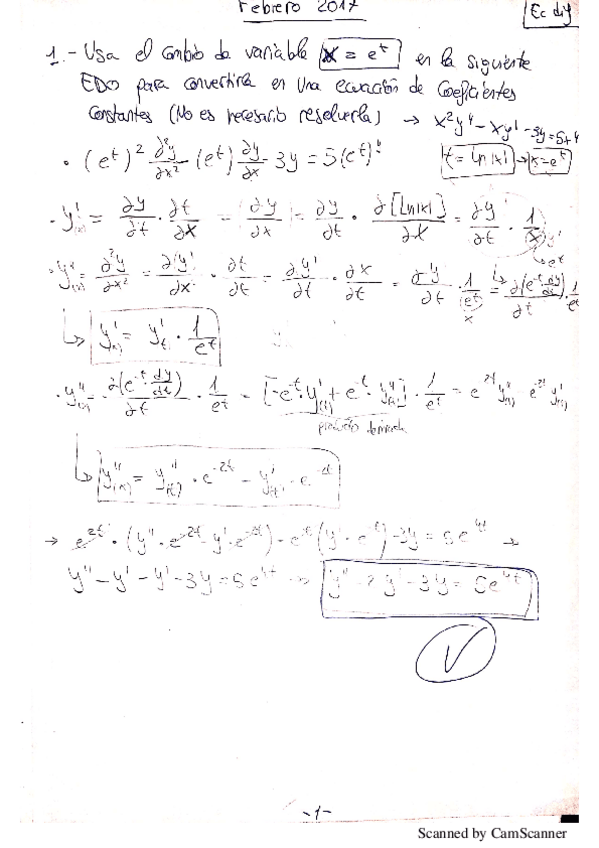 Febrero 2017
Ec dif
1.- Usa el cambio de variable x = e^t en la siguiente
EDO para convertirla en una ecuación de coeficientes
constantes (No es necesario resolverla) → x²y'' - xy' - 3y = 5x⁴
· (e^t)² ∂²y/∂x² - (e^t) ∂y/∂x - 3y = 5(e^t)⁴
t = ln|x| → x = e^t
· y'(x) = ∂y/∂t · ∂t/∂x = ∂y/∂x = ∂y/∂t · ∂[Ln|x|]/∂x = ∂y/∂t · 1/x
↳ e^t
· y''(x) = ∂²y/∂x² = ∂y'/∂x · ∂t/∂t = ∂y'/∂t · ∂x/∂t = ∂y'/∂t · 1/e^t = ∂(e^-t dy/dt)/∂t · 1/e^t
x
↳ y'(x) = y'(t) · 1/e^t
· y''(x) = ∂(e^-t dy/dt)/∂t · 1/e^t = [-e^-t · y'(t) + e^-t · y''(t)] · 1/e^t = e^-2t y''(t) - e^-2t y'(t)
producto derivada
↳ y''(x) = y''(t) · e^-2t - y'(t) · e^-2t
→ e^2t · (y'' · e^-2t - y' · e^-2t) - e^t (y' · e^-t) - 3y = 5e^4t →
y'' - y' - y' - 3y = 5e^4t → y'' - 2y' - 3y = 5e^4t
-1-
Scanned by CamScanner